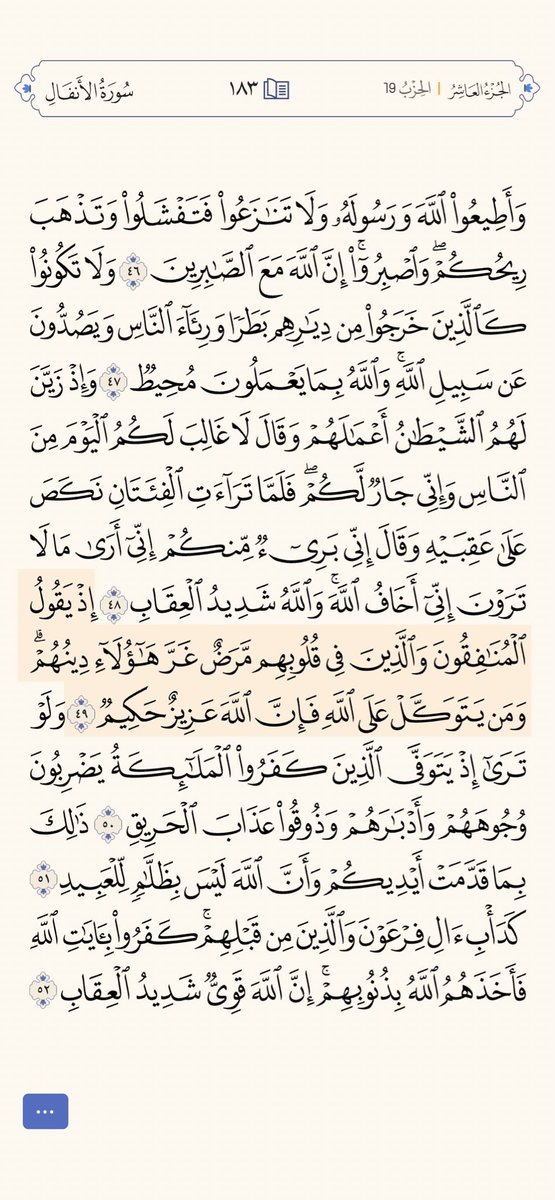 الجُزْءُ العَاشِرُ | الحِزْبُ 19 ١٨٣ سُورَةُ الأَنفَالِ
وَأَطِيعُوا۟ ٱللَّهَ وَرَسُولَهُۥ وَلَا تَنَـٰزَعُوا۟ فَتَفْشَلُوا۟ وَتَذْهَبَ
رِيحُكُمْ ۖ وَٱصْبِرُوٓا۟ ۚ إِنَّ ٱللَّهَ مَعَ ٱلصَّـٰبِرِينَ ٤٦ وَلَا تَكُونُوا۟
كَٱلَّذِينَ خَرَجُوا۟ مِن دِيَـٰرِهِم بَطَرًا وَرِئَآءَ ٱلنَّاسِ وَيَصُدُّونَ
عَن سَبِيلِ ٱللَّهِ ۚ وَٱللَّهُ بِمَا يَعْمَلُونَ مُحِيطٌ ٤٧ وَإِذْ زَيَّنَ
لَهُمُ ٱلشَّيْطَـٰنُ أَعْمَـٰلَهُمْ وَقَالَ لَا غَالِبَ لَكُمُ ٱلْيَوْمَ مِنَ
ٱلنَّاسِ وَإِنِّى جَارٌ لَّكُمْ ۖ فَلَمَّا تَرَآءَتِ ٱلْفِئَتَانِ نَكَصَ
عَلَىٰ عَقِبَيْهِ وَقَالَ إِنِّى بَرِىٓءٌ مِّنكُمْ إِنِّىٓ أَرَىٰ مَا لَا
تَرَوْنَ إِنِّىٓ أَخَافُ ٱللَّهَ ۚ وَٱللَّهُ شَدِيدُ ٱلْعِقَابِ ٤٨ إِذْ يَقُولُ
ٱلْمُنَـٰفِقُونَ وَٱلَّذِينَ فِى قُلُوبِهِم مَّرَضٌ غَرَّ هَـٰٓؤُلَآءِ دِينُهُمْ ۗ
وَمَن يَتَوَكَّلْ عَلَى ٱللَّهِ فَإِنَّ ٱللَّهَ عَزِيزٌ حَكِيمٌ ٤٩ وَلَوْ
تَرَىٰٓ إِذْ يَتَوَفَّى ٱلَّذِينَ كَفَرُوا۟ ٱلْمَلَـٰٓئِكَةُ يَضْرِبُونَ
وُجُوهَهُمْ وَأَدْبَـٰرَهُمْ وَذُوقُوا۟ عَذَابَ ٱلْحَرِيقِ ٥٠ ذَٰلِكَ
بِمَا قَدَّمَتْ أَيْدِيكُمْ وَأَنَّ ٱللَّهَ لَيْسَ بِظَلَّـٰمٍ لِّلْعَبِيدِ ٥١
كَدَأْبِ ءَالِ فِرْعَوْنَ وَٱلَّذِينَ مِن قَبْلِهِمْ ۚ كَفَرُوا۟ بِـَٔايَـٰتِ ٱللَّهِ
فَأَخَذَهُمُ ٱللَّهُ بِذُنُوبِهِمْ ۚ إِنَّ ٱللَّهَ قَوِىٌّ شَدِيدُ ٱلْعِقَابِ ٥٢